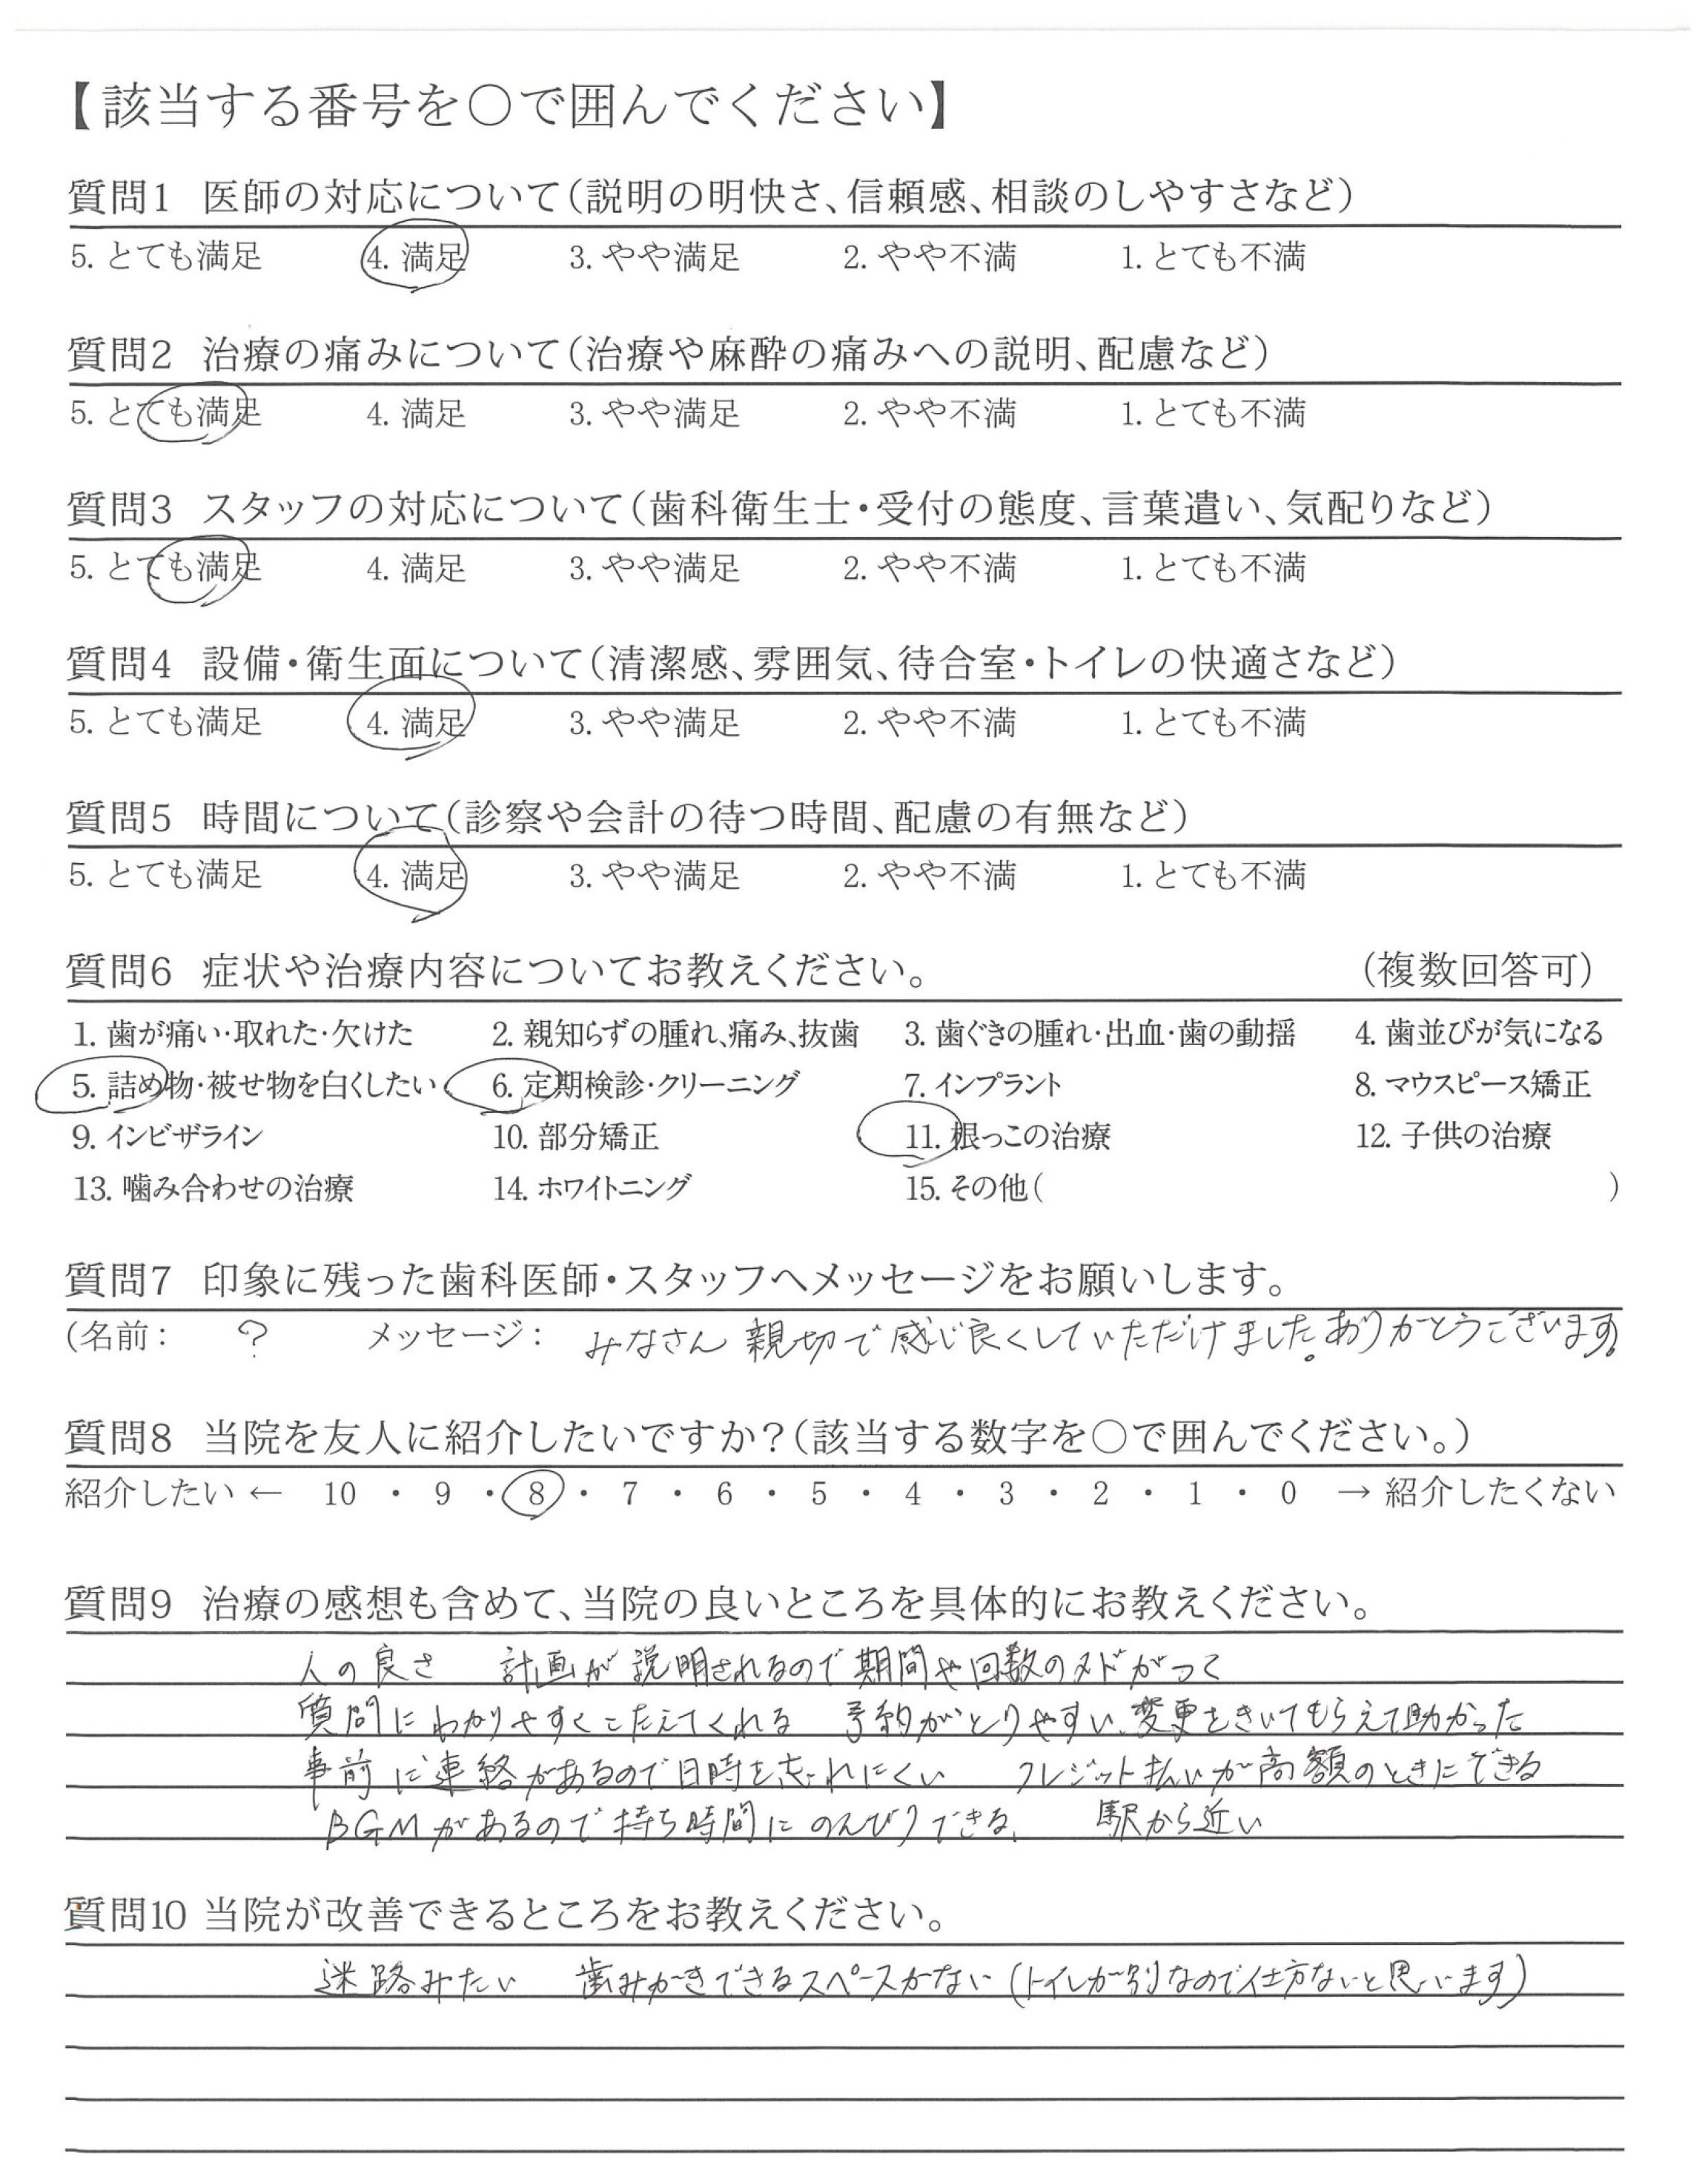 【該当する番号を○で囲んでください】
質問1 医師の対応について(説明の明快さ、信頼感、相談のしやすさなど)
5. とても満足 4. 満足 3. やや満足 2. やや不満 1. とても不満
質問2 治療の痛みについて(治療や麻酔の痛みへの説明、配慮など)
5. とても満足 4. 満足 3. やや満足 2. やや不満 1. とても不満
質問3 スタッフの対応について(歯科衛生士・受付の態度、言葉遣い、気配りなど)
5. とても満足 4. 満足 3. やや満足 2. やや不満 1. とても不満
質問4 設備・衛生面について(清潔感、雰囲気、待合室・トイレの快適さなど)
5. とても満足 4. 満足 3. やや満足 2. やや不満 1. とても不満
質問5 時間について(診察や会計の待つ時間、配慮の有無など)
5. とても満足 4. 満足 3. やや満足 2. やや不満 1. とても不満
質問6 症状や治療内容についてお教えください。 (複数回答可)
1. 歯が痛い・取れた・欠けた 2. 親知らずの腫れ、痛み、抜歯 3. 歯ぐきの腫れ・出血・歯の動揺 4. 歯並びが気になる
5. 詰め物・被せ物を白くしたい 6. 定期検診・クリーニング 7. インプラント 8. マウスピース矯正
9. インビザライン 10. 部分矯正 11. 根っこの治療 12. 子供の治療
13. 噛み合わせの治療 14. ホワイトニング 15. その他( )
質問7 印象に残った歯科医師・スタッフへメッセージをお願いします。
(名前: ? メッセージ: みなさん親切で感じ良くしていただけました。ありがとうございます。
質問8 当院を友人に紹介したいですか?(該当する数字を○で囲んでください。)
紹介したい ← 10 ・ 9 ・ 8 ・ 7 ・ 6 ・ 5 ・ 4 ・ 3 ・ 2 ・ 1 ・ 0 → 紹介したくない
質問9 治療の感想も含めて、当院の良いところを具体的にお教えください。
人の良さ 計画が説明されるので期間や回数のメドがつく
質問にわかりやすくこたえてくれる 予約がとりやすい、変更をきいてもらえて助かった
事前に連絡があるので日時を忘れにくい クレジット払いが高額のときにできる
BGMがあるので持ち時間にのんびりできる、 駅から近い
質問10 当院が改善できるところをお教えください。
迷路みたい 歯みがきできるスペースがない(トイレが別なので仕方ないと思います)